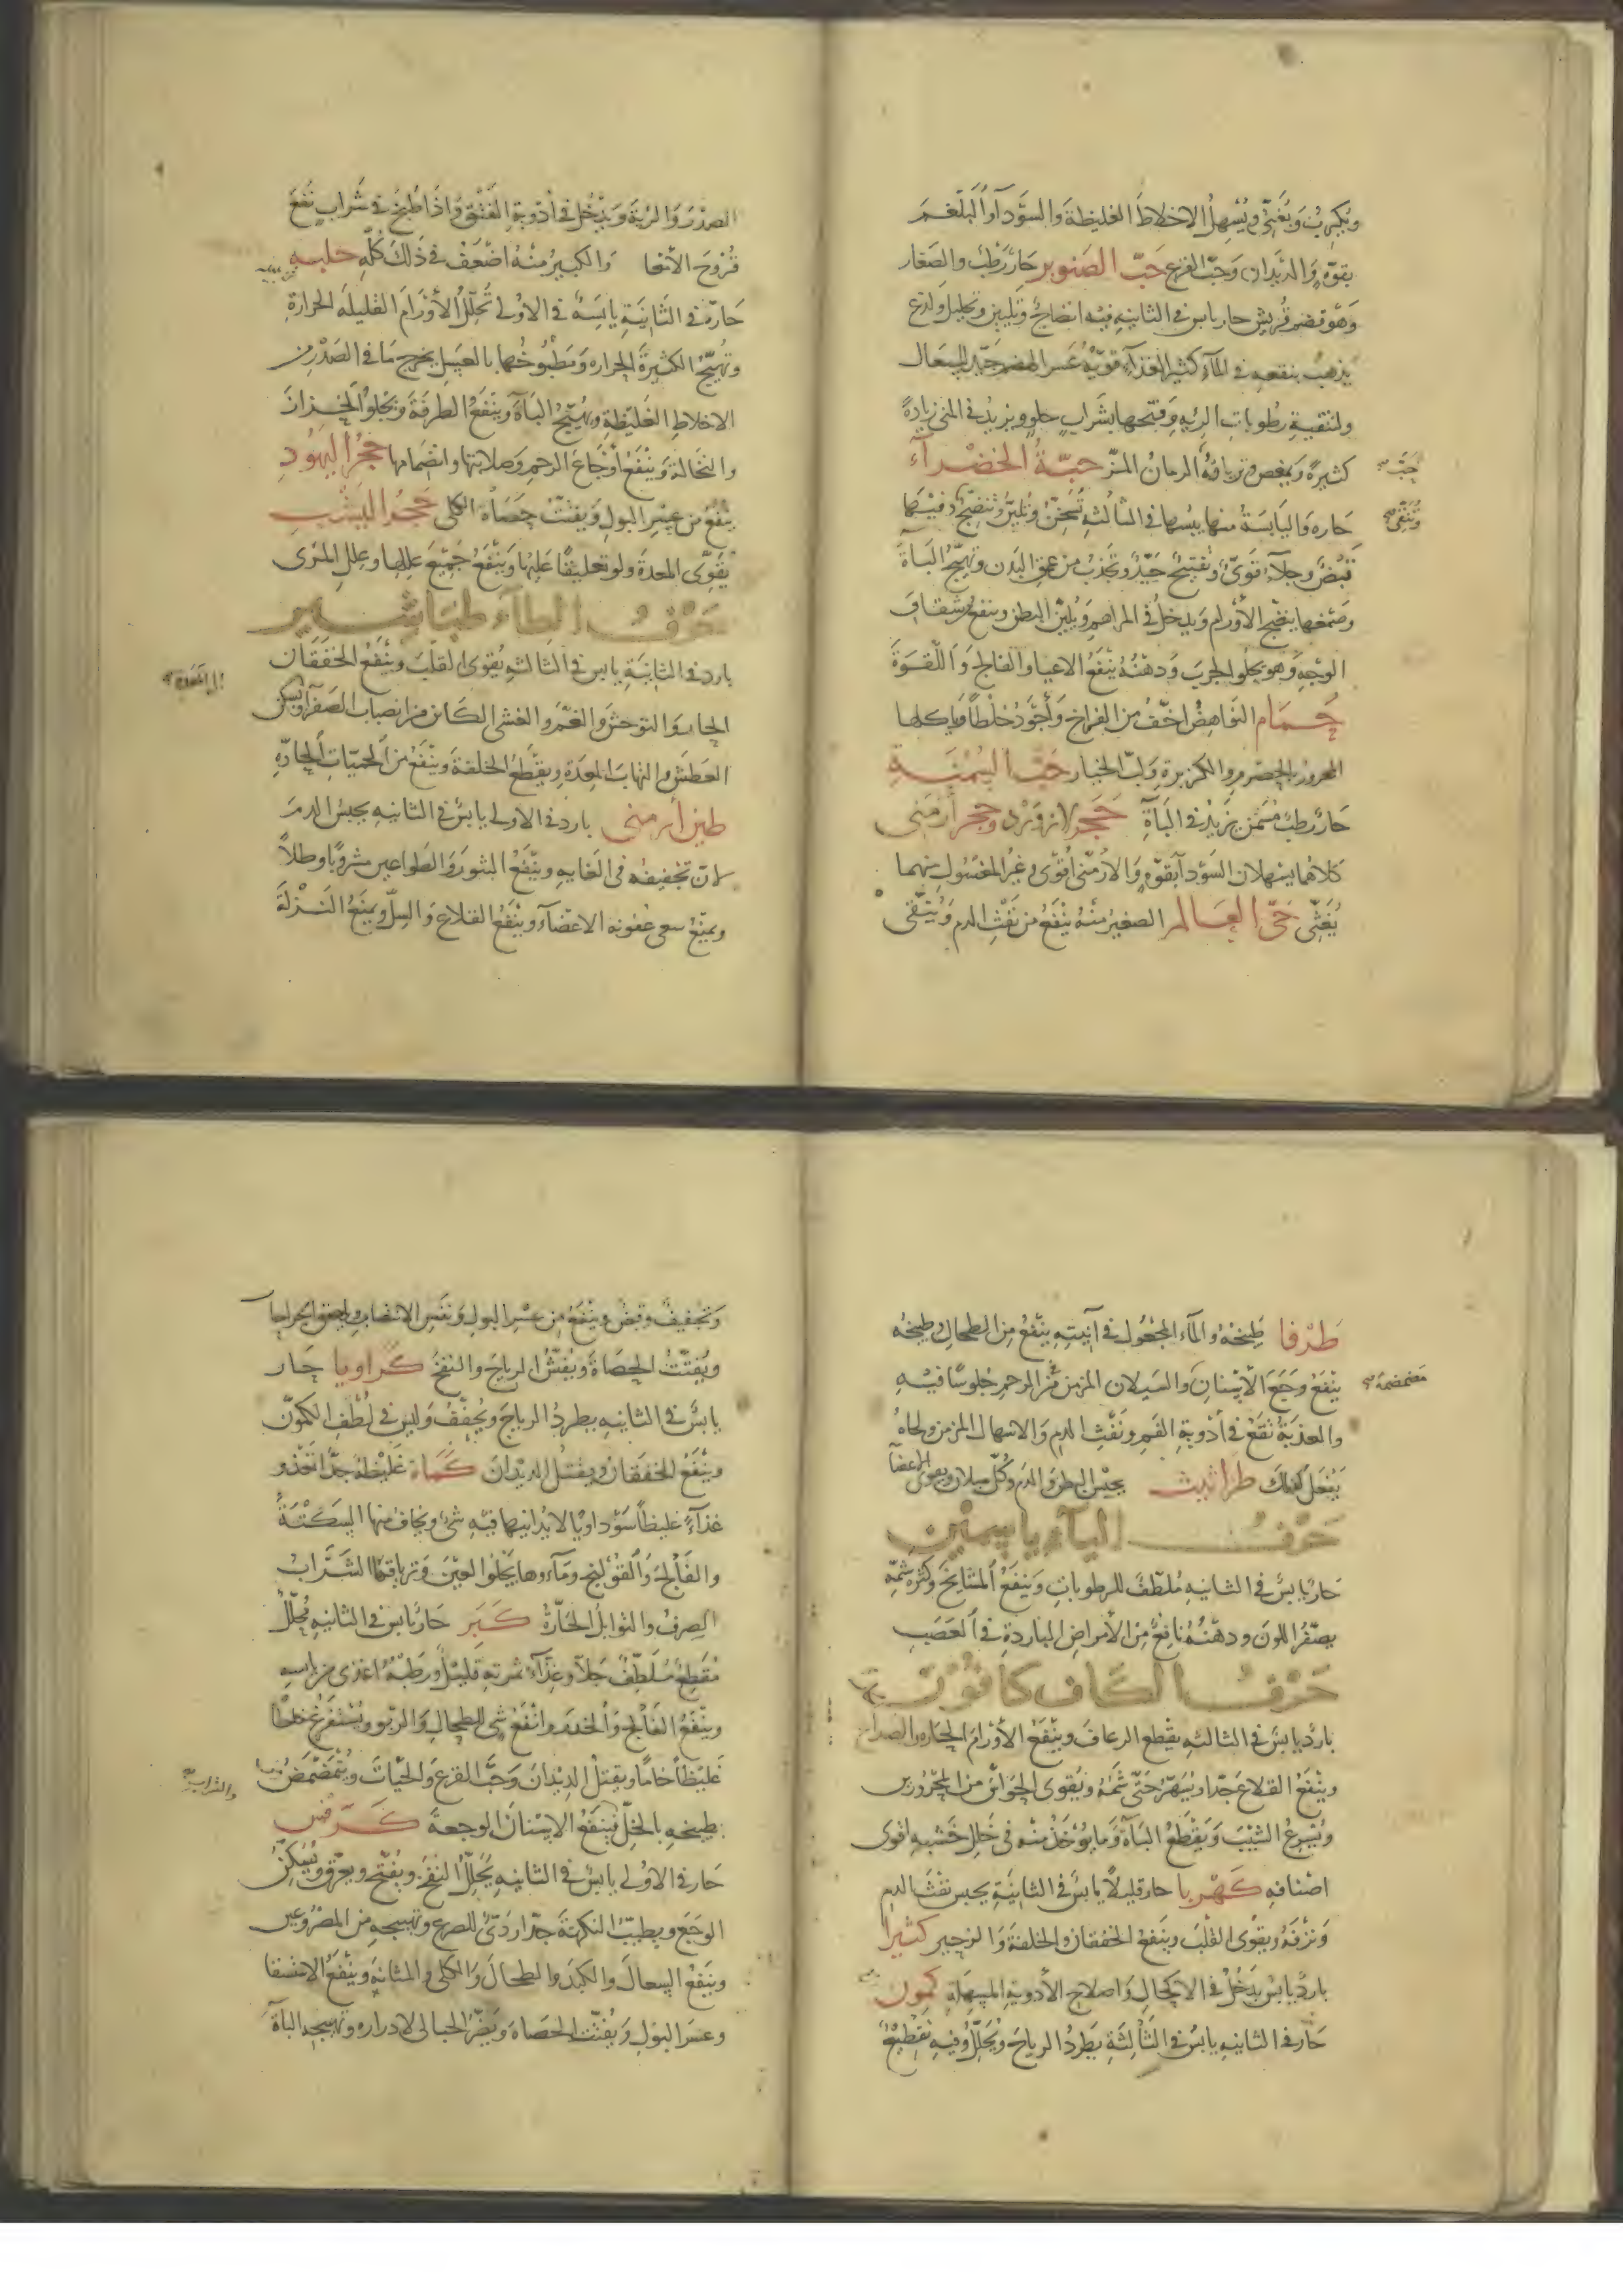 ويكرب ويغثي ويسهل الاخلاط الغليظة والسودآ والبلغم
بقوه والديدان وحب القرع حبّ الصنوبر حار رطب والصغار
وهو قضم قريش حار يابس فى الثانيه فيه انضاج وتليين وتحليل ولدع
يذهب بنقعه فى المآء كثير الغذآء قويّه عسر الهضم جيّد للسعال
ولتنقية رطوبات الريه وقيحها بشراب حلو ويزيد فى المنى زيادة
كثيرة ويمغص وترياقه الرمان المزّ حبّة الخضرآء
حبّ
حاره واليابسة منها يبسها فى الثالثه تسخن وتلين وتنضج وفيها
وتنقى
قبض وجلآء قوىّ وتفتيح جيّد وتجذب من عمق البدن وتهيّج الباة
وصمغها ينضج الأورام ويدخل فى المراهم ويلين البطن وينفع شقاق
الوجه وهو يجلوا الجرب ودهنه ينفع الاعيا والفالج واللقوة
حمام النواهض اخفّ من الفراخ وأجود خلطاً وياكلها
المحرور بالحصرم والكزبرة ولبّ الخيار حبّ السمنة
حار رطب مسمن يزيد فى البآة حجر لازورد وحجر ارمنى
كلاهما يسهلان السودآ بقوّه والارمنى اقوى وغير المغسول منهما
يغثّى حىّ العالم الصغير منه ينفع من نفث الدم وينقى
الصدر والرية ويدخل فى أدوية الفتق واذا طبخ فى شراب نفع
قروح الأمعا والكبير منه اضعف فى ذلك كلّه حلبه
حارة فى الثانية يابسة فى الاولى تحلّل الأورام القليلة الحرارة
وتهيّج الكثيرة الحراره ومطبوخها بالعسل يخرج ما فى الصدر من
الاخلاط الغليظة ويهيّج الباة وينفع الطرفة ويجلوا الحزاز
والنخالة وينفع أوجاع الرحم وصلابتها وانضمامها حجر اليهود
ينفع من عسر البول ويفتّت حصاة الكلى حجر اليشب
يقوّى المعدة ولو تعليقًا عليها وينفع جميع عللها وعلل المرى
حرف الطآء طباشير
بارد فى الثانية يابس فى الثالثه يقوى القلب وينفع الخفقان
الى المعدة
الحار والتوحش والغم والغشى الكائن من انصباب الصفرآ ويسكن
العطش والتهاب المعدة ويقطع الخلفة وينفع من الحميات الحادّة
طين ارمنى بارد فى الاولى يابس فى الثانيه يحبس الدم
لانّ تجفيفه فى الغايه وينفع البثور والطواعين مشروبًا وطلآً
ويمنع سعى عفونه الاعضآء وينفع القلاع والسلّ ويمنع النزلة
طرفا طبيخه والمآء المجعول فى آنيته ينفع من الطحال وطبيخه
ينفع وجع الاسنان والسيلان المزمن من الرحم جلوسًا فيه
مضمضة
والعذبة تقع فى أدوية الفم ونفث الدم والاسهال المزمن ولحاه
يفعل كذلك طراثيث يحبس البطن والدم وكلّ سيلان ويقوى الاعضآ
حرف اليآء ياسمين
حار يابس فى الثانيه ملطّف للرطوبات وينفع المشايخ وكثرة شمّه
يصفّر اللون ودهنه نافع من الأمراض الباردة فى العصب
حرف الكاف كافور
بارد يابس فى الثالثه يقطع الرعاف وينفع الأورام الحاره والصداع
وينفع القلاع جدا ويسهر حتى شمّه ويقوى الحواس من المحرورين
ويسرع الشيب ويقطع الباة وما يوخذ منه فى خلل خشبه اقوى
اصنافه كهربا حار قليلاً يابس فى الثانية يحبس نفث الدم
ونزفه ويقوى القلب وينفع الخفقان والخلفة والزحير كثيرا
بارد يابس يدخل فى الاكحال واصلاح الأدوية المسهلة كمون
حار فى الثانيه يابس فى الثالثة يطرد الرياح ويحلّل وفيه تقطيع
وتجفيف وقبض وينفع من عسر البول ونفس الانتصاب ويلصق الجراحا
ويفتّت الحصاة ويفشّ الرياح والنفخ كراويا حار
يابس فى الثانيه يطرد الرياح ويجفّف وليس فى لطف الكمون
وينفع الخفقان ويقتل الديدان كماة غليظة جدّا تغذو
غذآءً غليظاً سوداويا لا يدانيها فيه شئ ويخاف منها السكتة
والفالج والقولنج ومآوها يجلوا العين وترياقها الشراب
الصرف والتوابل الحارّة كبر حار يابس فى الثانيه محلّل
مقطع ملطّف جلآء وغذآء ثمرته قليل ورطبه اغذى من يابسه
وينفع الفالج والخدر وانفع شى للطحال والربو ويستفرغ خلطًا
غليظاً خامًا ويقتل الديدان وحب القرع والحيّات ويتمضمض
والشراب
بطبيخه بالخلّ فينفع الاسنان الوجعة كرفس
حار فى الاولى يابس فى الثانيه يحلّل النفخ ويفتّح ويعرّق ويسكن
الوجع ويطيب النكهة جدّا ردىّ للصرع وتهييجه من المصروعين
وينفع السعال والكبد والطحال والكلى والمثانة وينفع الاستسقا
وعسر البول ويفتّت الحصاة ويضرّ الحبالى لادراره وتهييجه الباة